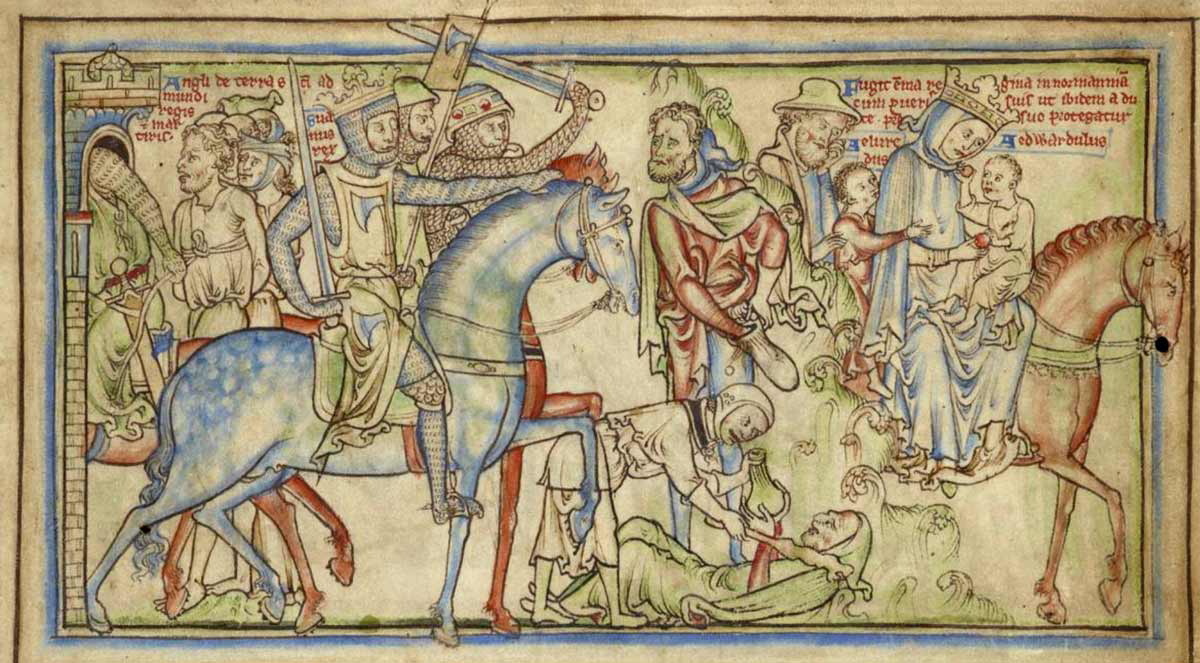 Angli de terra s ñ ad
mundi
regis
mar
tiris.
Sua
nus
rex
Fugit ēma re gina in normanniā
cum pueri suis ut ibidem a du
ce suo protegatur
Aelure
dus
Aedwardulus